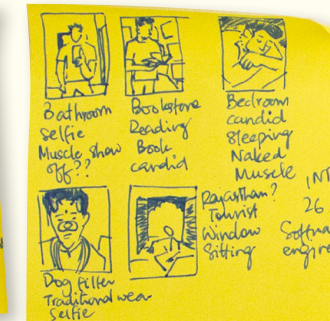 Bathroom
Selfie
Muscle show
off??
Bookstore
Reading
Book
candid
Bedroom
candid
Sleeping
Naked
Muscle
Dog filter
Traditional wear
Selfie
Rajasthan?
Tourist
Window
Sitting
26